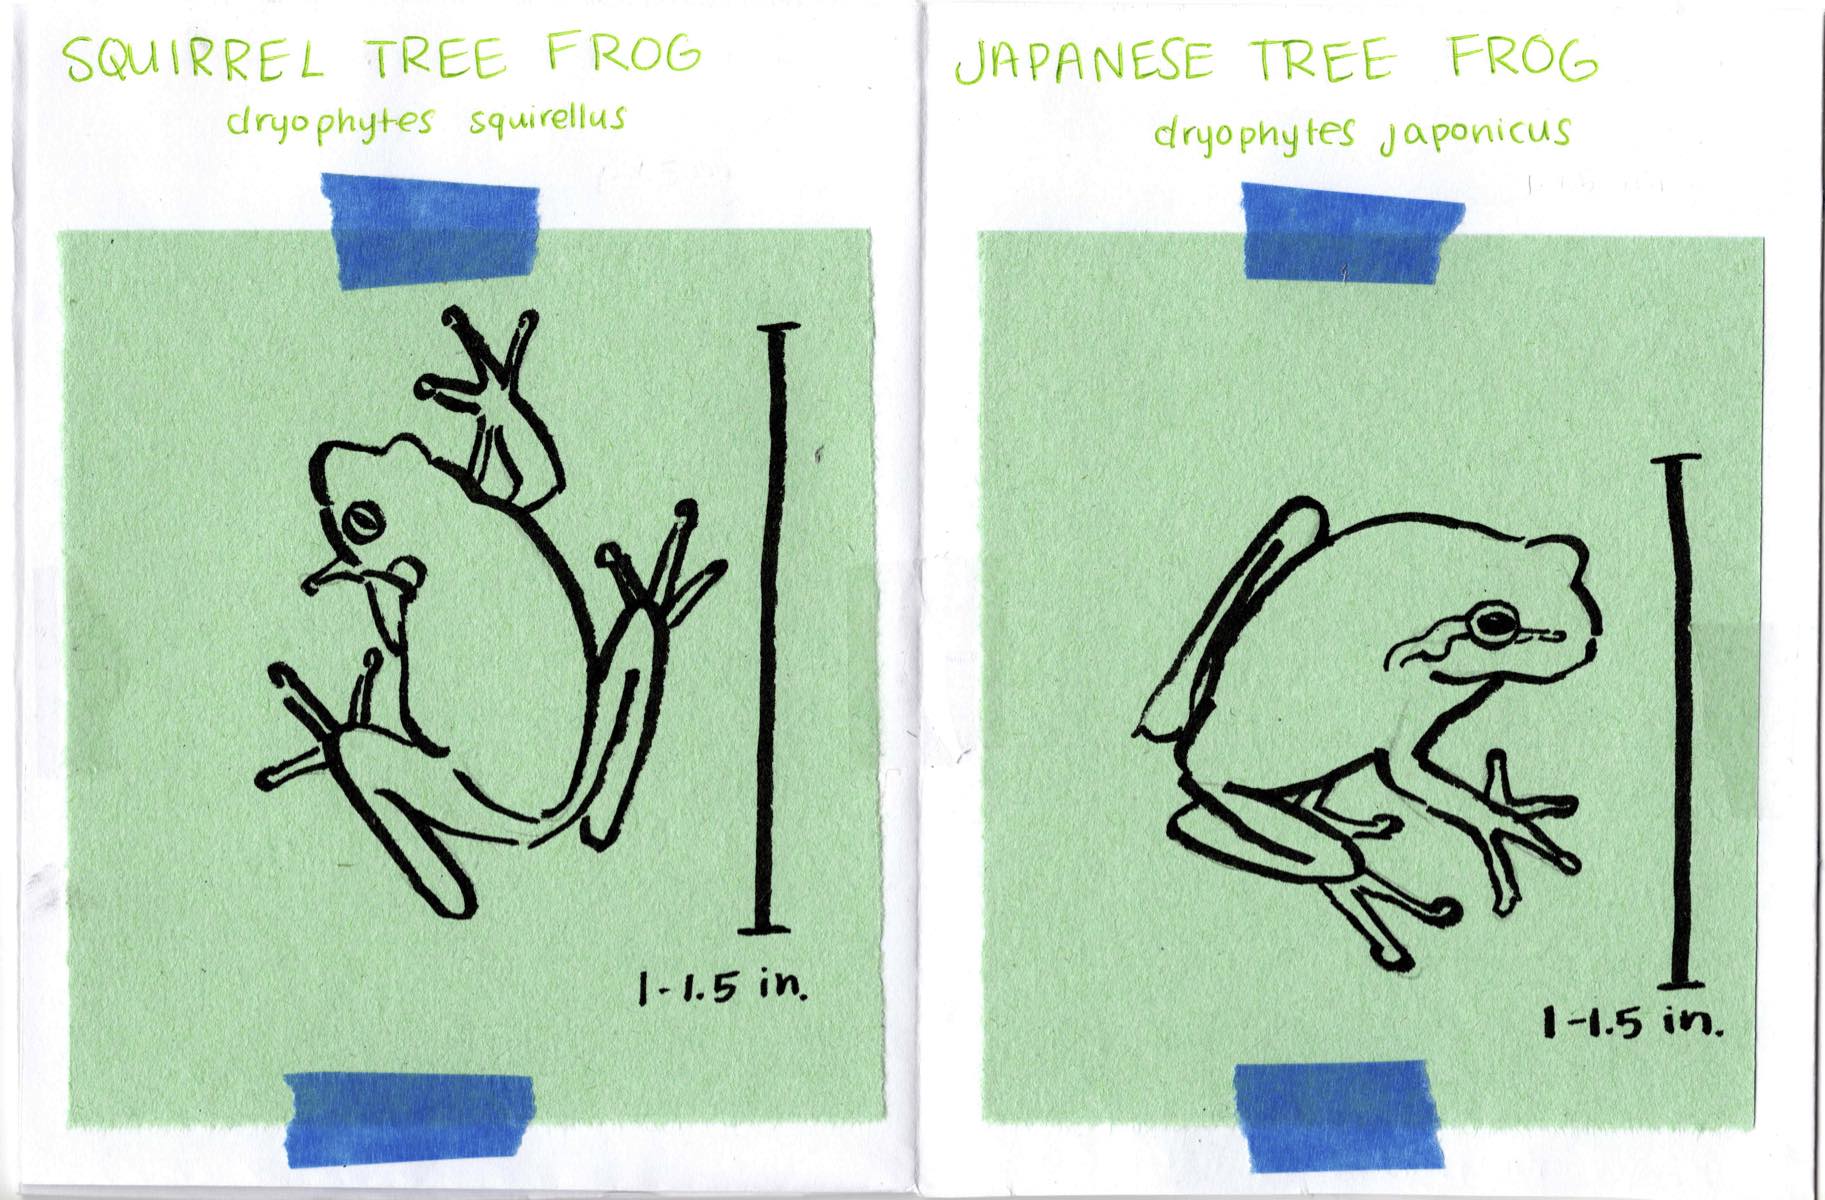 SQUIRREL TREE FROG
dryophytes squirellus
1-1.5 in.
JAPANESE TREE FROG
dryophytes japonicus
1-1.5 in.